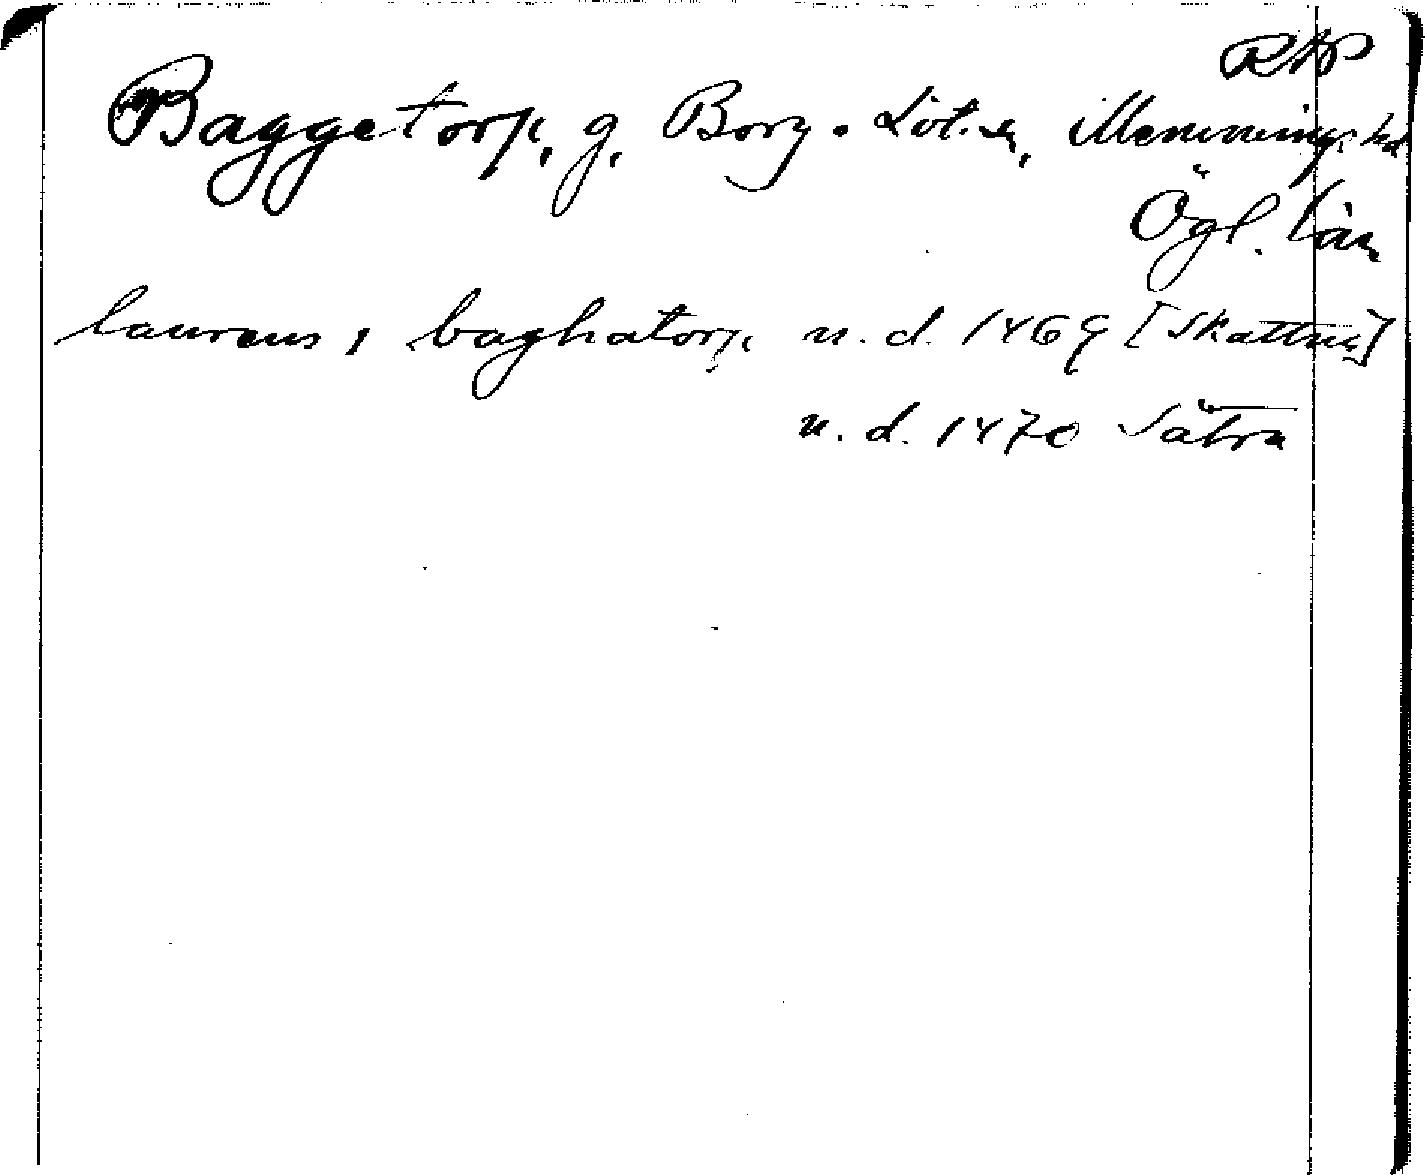 RAP
Baggetorp, g, Borg o. Löt sn, Memmings hd
Ögl. län
laurens, baghatorp u. d. 1469 [Skattna]
u. d. 1470 Sätra